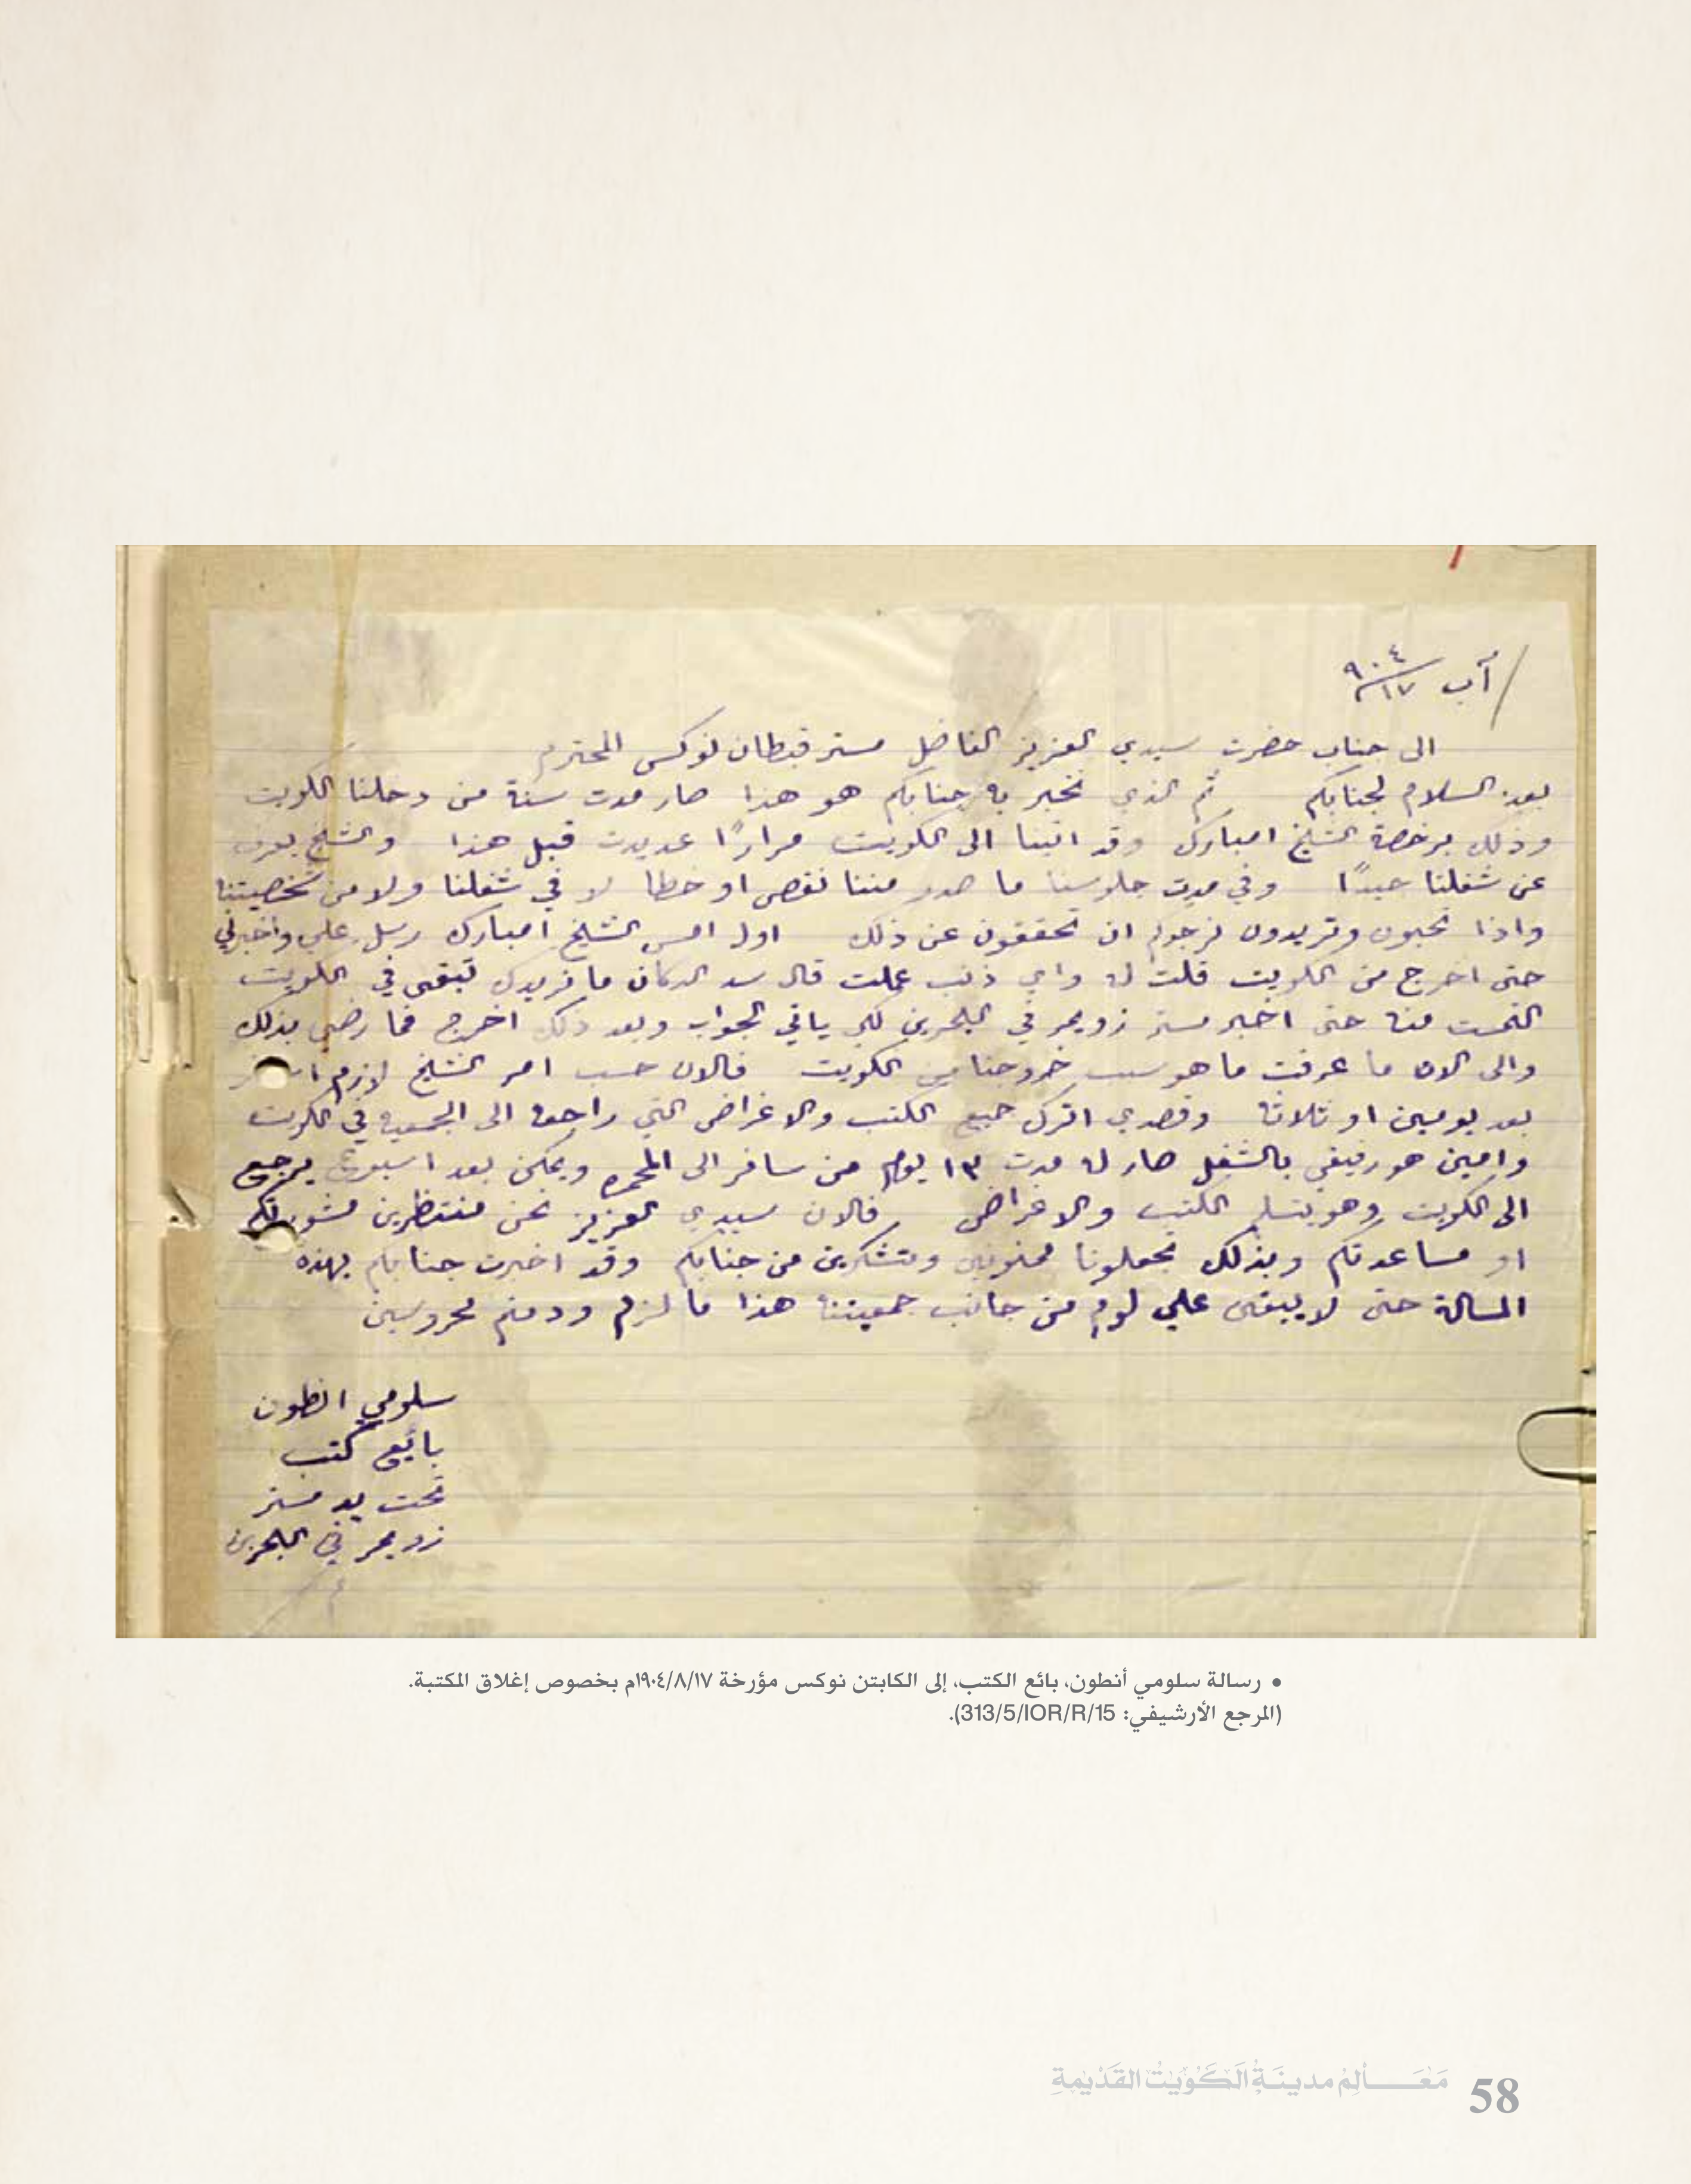 آب ١٧/٩٠٤
الى جناب حضرت سيدي العزيز الفاضل مستر قبطان نوكس المحترم
بعد السلام لجنابكم ثم الذي نخبر به جنابكم هو هذا صار مدت سنة من دخلنا الكويت
وذلك برخصة الشيخ امبارك وقد اتينا الى الكويت مرارًا عديدت قبل هذا والشيخ يعرف
عن شغلنا جيدًا وفي مدت جلوسنا ما صدر مننا نقص او خطا لا في شغلنا ولا من شخصيتنا
واذا تحبون وتريدون نرجوكم ان تحققون عن ذلك اول امس الشيخ امبارك رسل علي واخبرني
حتى اخرج من الكويت قلت له واي ذنب عملت قال سد الدكان ما نريدك تبقى في الكويت
التمست منه حتى اخبر مستر زويمر في البحرين لكي ياتي الجواب وبعد ذلك اخرج فما رضي بذلك
والى الان ما عرفت ما هو سبب خروجنا من الكويت فالان حسب امر الشيخ لازم
بعد يومين او ثلاثة وقصدي اترك جميع الكتب والاغراض التي راجعه الى الجمعيه في الكويت
وامين هو رفيقي بالشغل صار له مدت ١٣ يوم من سافر الى المحمره ويمكن بعد اسبوع يرجع
الى الكويت وهو يتسلم الكتب والاغراض فالان سيدي العزيز نحن منتظرين مشورتكم
او مساعدتكم وبذلك تجعلونا ممنونين ومتشكرين من جنابكم وقد اخبرت جنابكم بهذه
المسالة حتى لا يبقى علي لوم من جانب جمعيتنا هذا ما لزم ودمتم محروسين
سلومي انطون
بائع كتب
تحت يد مستر
زويمر في البحرين
• رسالة سلومي أنطون، بائع الكتب، إلى الكابتن نوكس مؤرخة ١٩٠٤/٨/١٧م بخصوص إغلاق المكتبة.
(المرجع الأرشيفي: 313/5/IOR/R/15).
مَعَـــالِمْ مدينَـةُ الكُوَيْتُ القَدْيمةِ 58